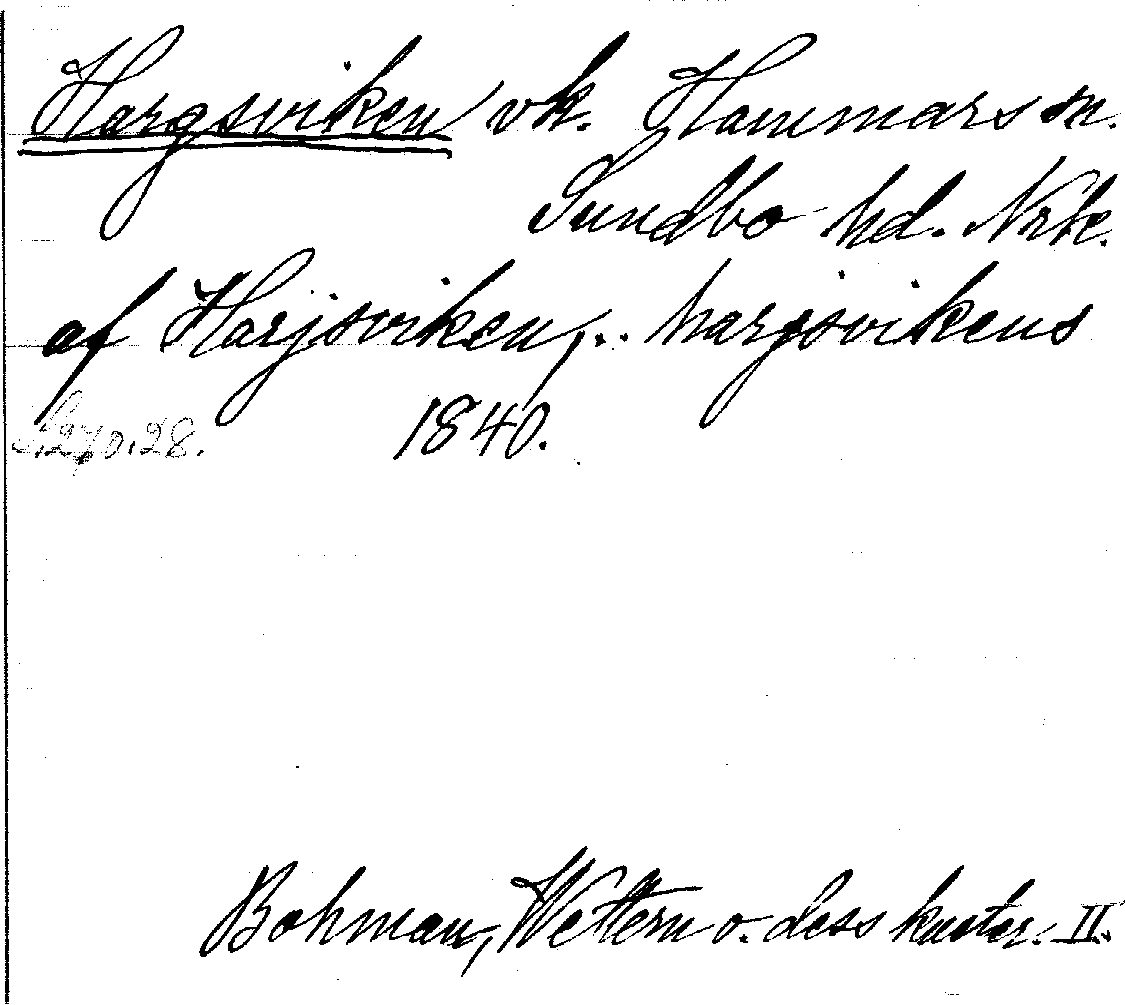 Hargsviken vk. Hammars sn.
Sundbo hd. Nrk.
af Harjsviken, .. hargsvikens
S. 270.28. 1840.
Bohman, Wettern o. dess kuster. II.